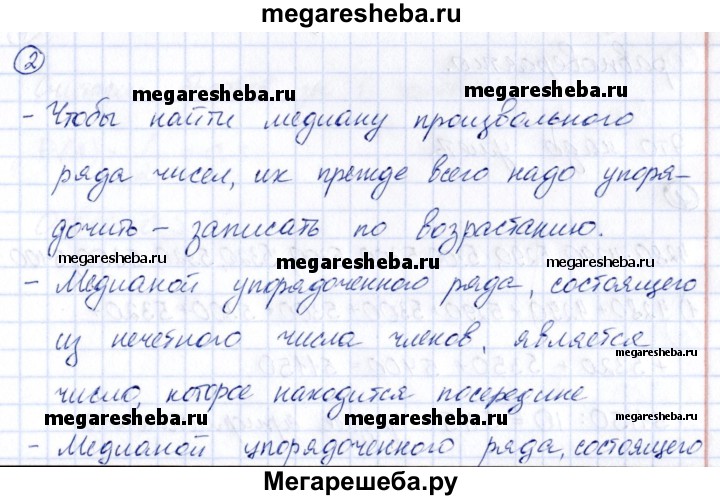 megaresheba.ru
2
megaresheba.ru megaresheba.ru
- Чтобы найти медиану произвольного
ряда чисел, их прежде всего надо упоря-
дочить – записать по возрастанию.
megaresheba.ru megaresheba.ru megaresheba.ru
- Медианой упорядоченного ряда, состоящего
из нечетного числа членов, является
megaresheba.ru
число, которое находится посередине
megaresheba.ru megaresheba.ru megaresheba.ru
- Медианой упорядоченного ряда, состоящего
Мегарешеба.ру